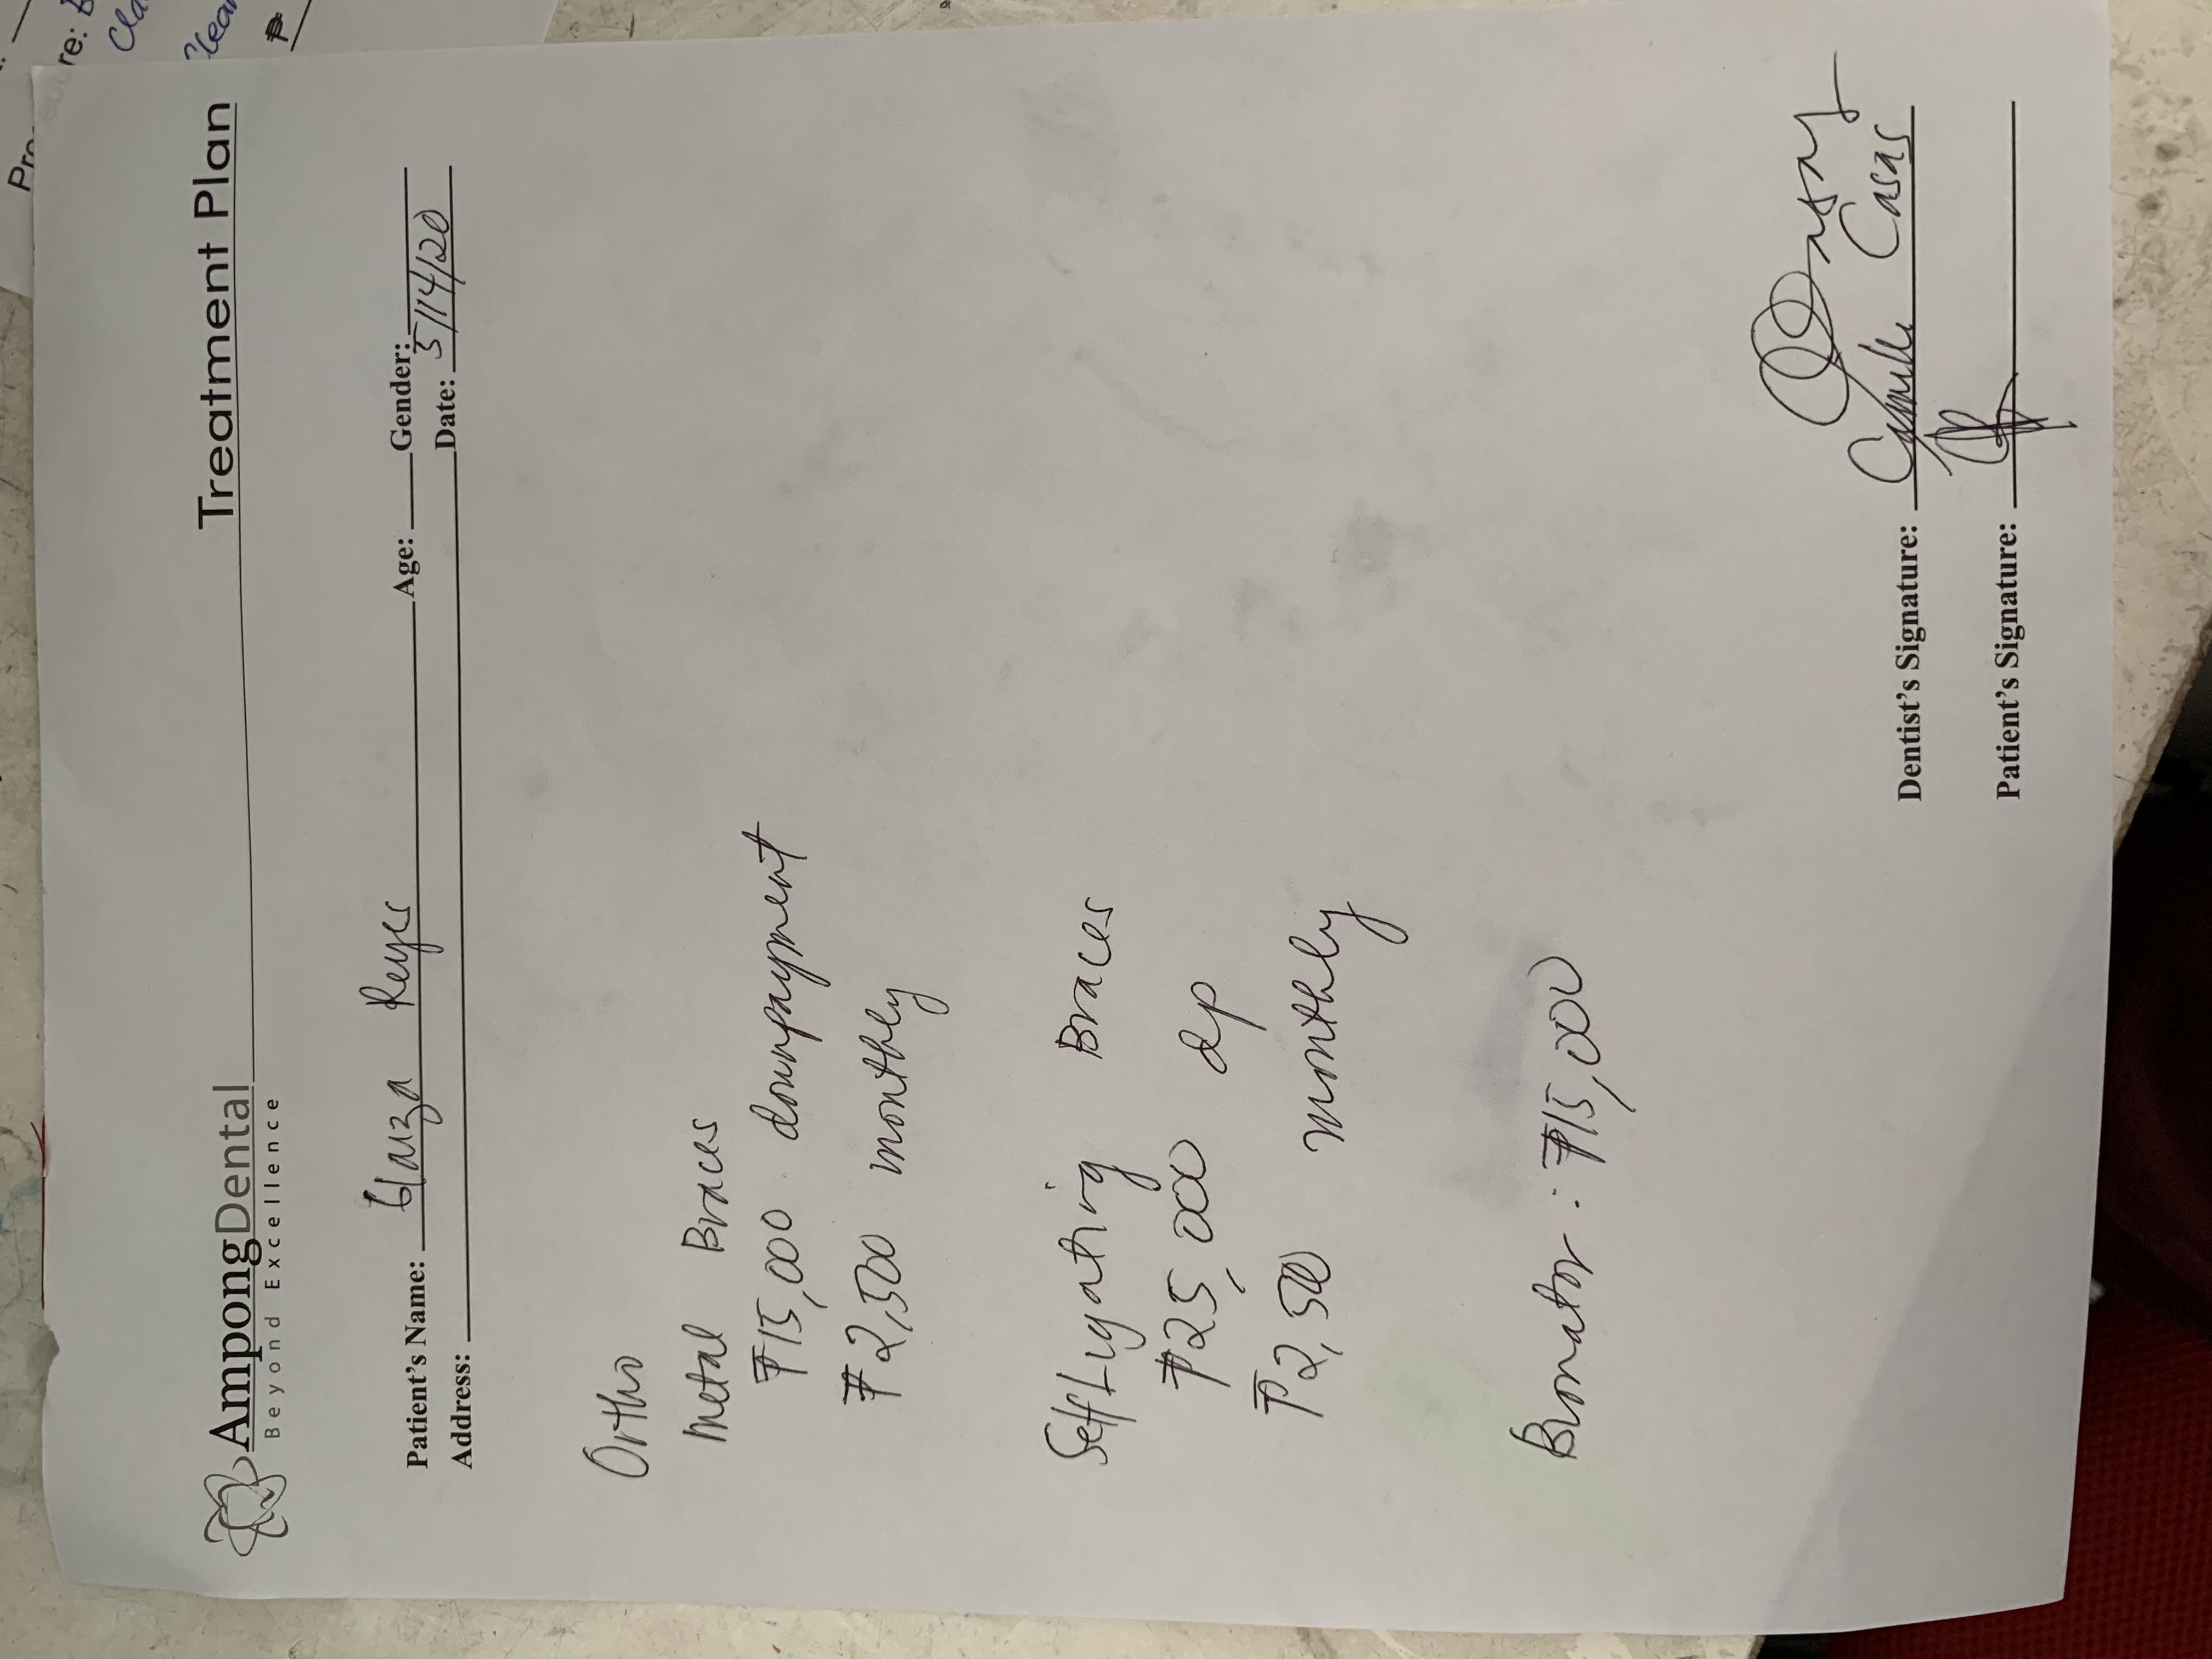 Procedure: B
Cla
Clean
₱
AmpongDental
Beyond Excellence
Treatment Plan
Patient's Name: Glaiza Reyes Age: Gender:
Address: Date: 5/14/20
Ortho
Metal Braces
₱15,000 downpayment
₱2,500 monthly
Self Ligating Braces
₱25,000 dp
₱2,500 monthly
Bionator: ₱15,000
Dentist's Signature: Camille Casas
Patient's Signature: